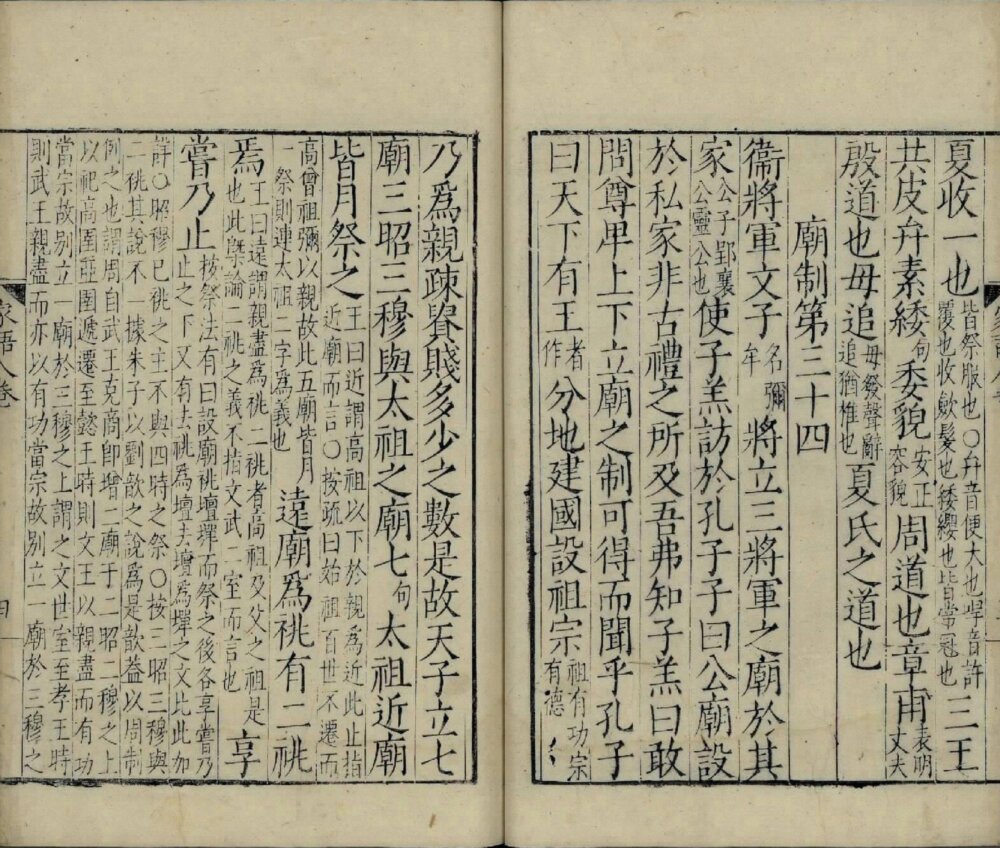 夏收一也皆祭服也〇弁音便大也冔音許覆也收歛髮也緌纓也皆常冠也三王
共皮弁素緌句委貌安正容貌周道也章甫表明丈夫
殷道也毋追毋發聲辭追猶椎也夏氏之道也
廟制第三十四
衞將軍文子名彌牟將立三將軍之廟於其
家公子郢襄公靈公也使子羔訪於孔子子曰公廟設
於私家非古禮之所及吾弗知子羔曰敢
問尊卑上下立廟之制可得而聞乎孔子
曰天下有王者作分地建國設祖宗祖有功宗有德
乃為親疎貴賤多少之數是故天子立七
廟三昭三穆與太祖之廟七句太祖近廟
皆月祭之王曰近謂高祖以下於親為近此止指近廟而言〇按疏曰始祖百世不遷而
高曾祖彌以親故此五廟皆月祭則連太祖二字為義也遠廟為祧有二祧
焉王曰遠謂親盡為祧二祧者高祖及父之祖是也此槩論二祧之義不指文武二室而言也享
嘗乃止按祭法有曰設廟祧壇墠而祭之後各享嘗乃止止之下又有去祧為壇去壇為墠之文比此加
詳〇昭穆已祧之主不與四時之祭〇按三昭三穆與二祧其說不一據朱子以劉歆之說為是歆蓋以周制
例之也謂周自武王克商即增二廟于二昭二穆之上以祀高圉亞圉遞遷至懿王時則文王以親盡而有功
當宗故別立一廟於三穆之上謂之文世室至孝王時則武王親盡而亦以有功當宗故別立一廟於三穆之
家語八卷
四